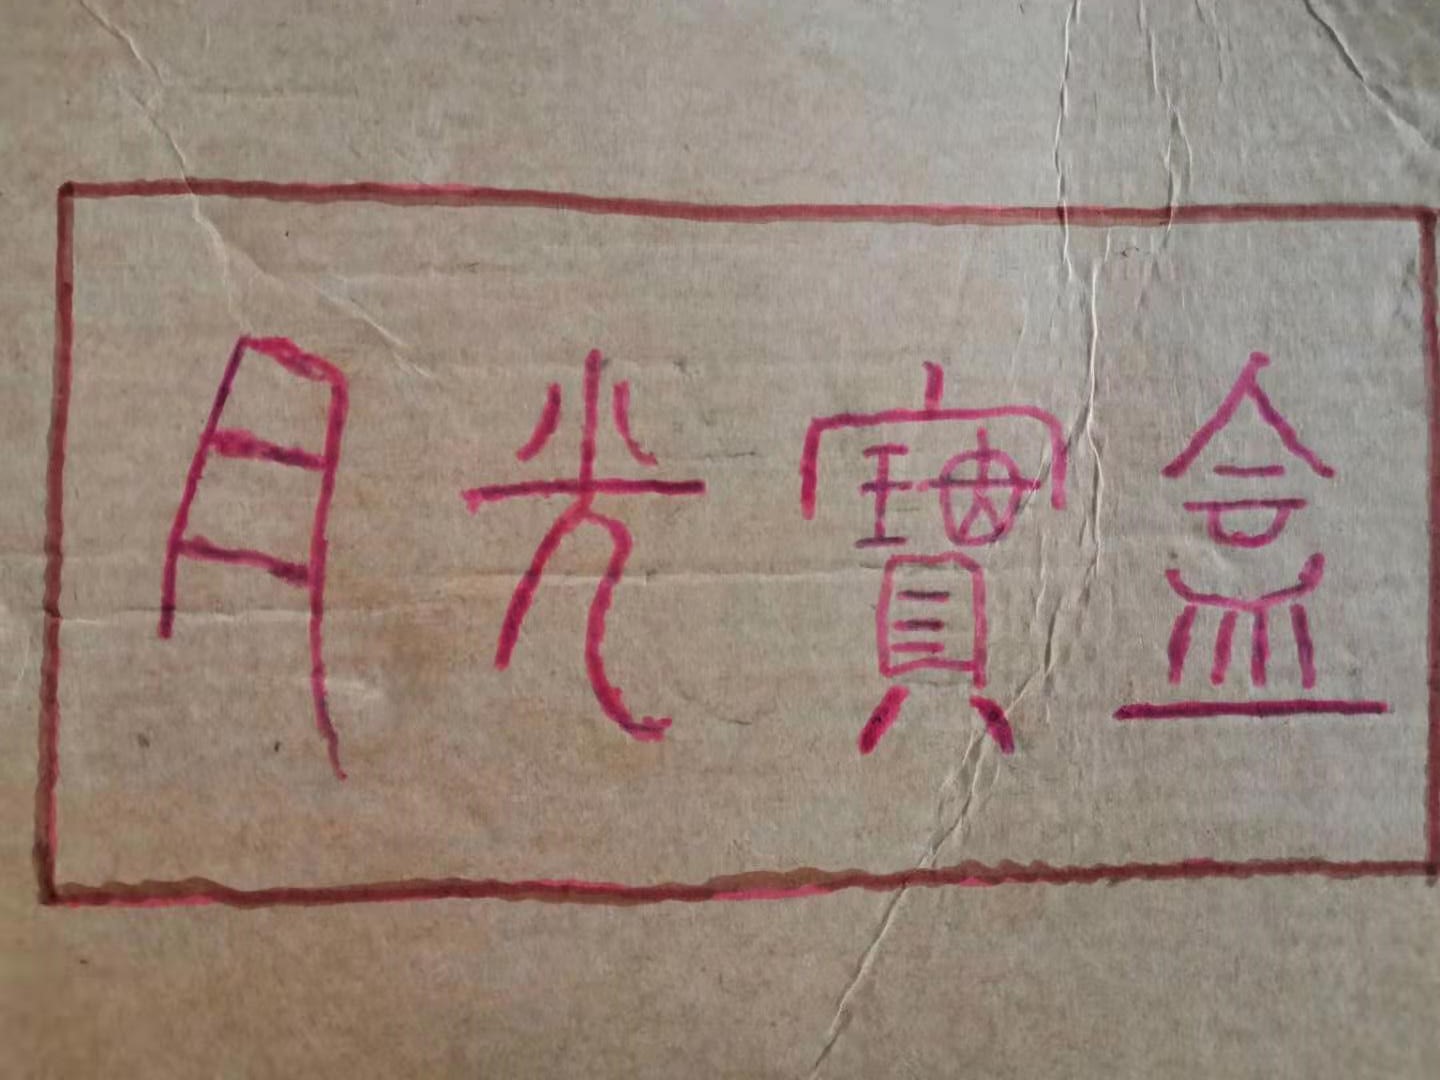 月光寶盒